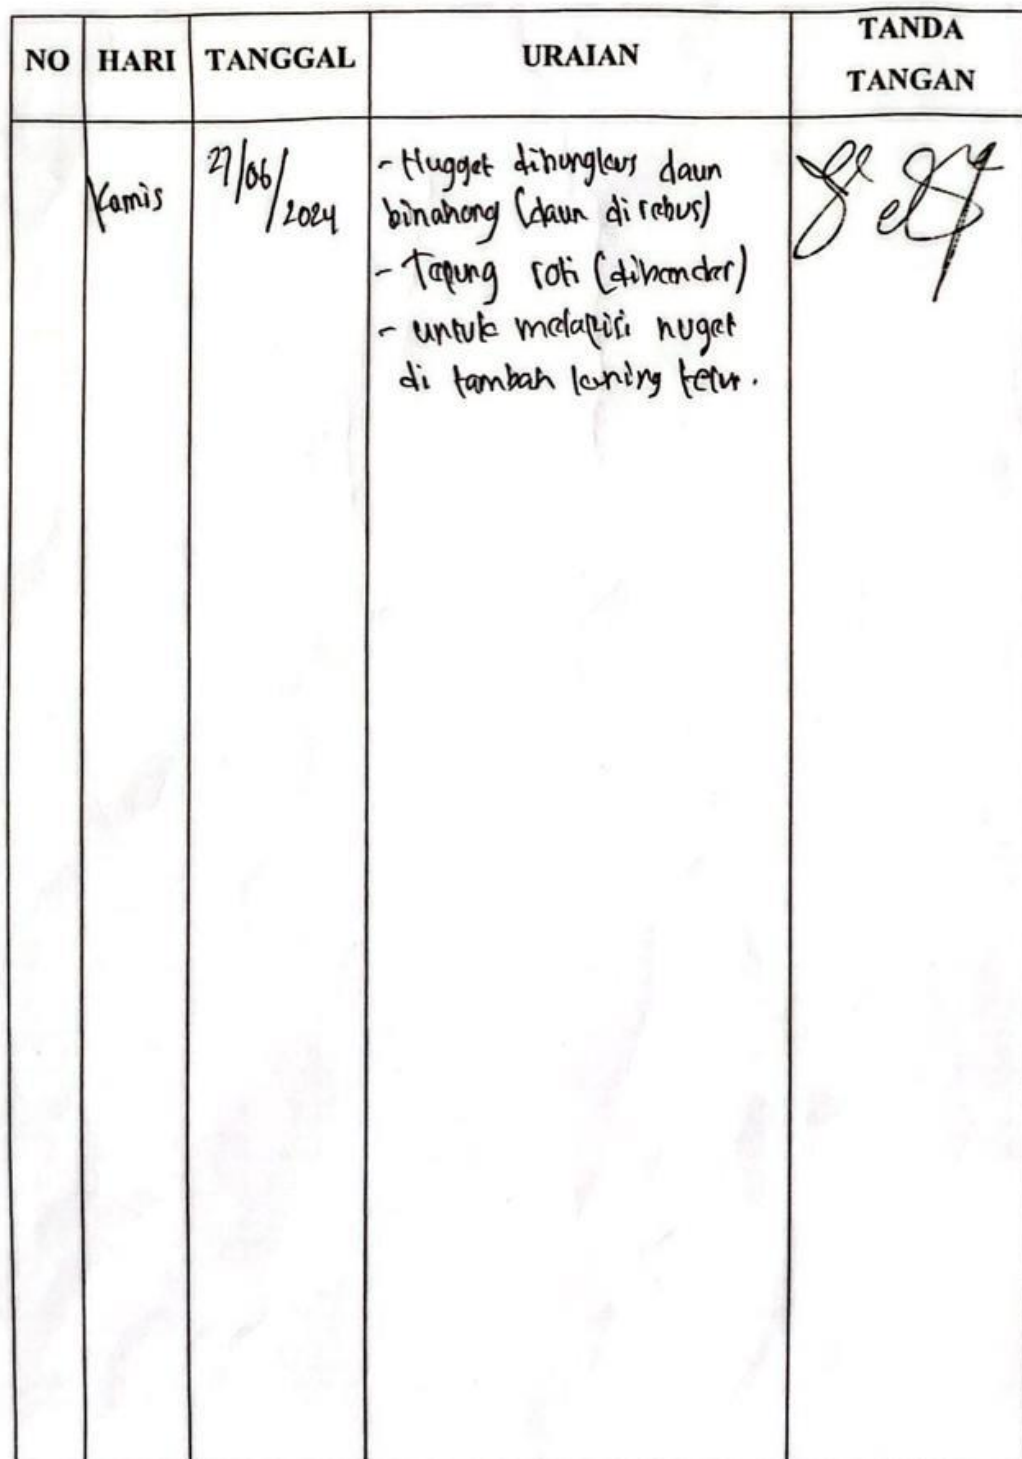 NO HARI TANGGAL URAIAN TANDA
TANGAN
Kamis 27/06/2024 - Nugget dibungkus daun
binahong (daun di rebus)
- Tepung roti (diblender)
- untuk melapisi nuget
di tambah kuning telur.